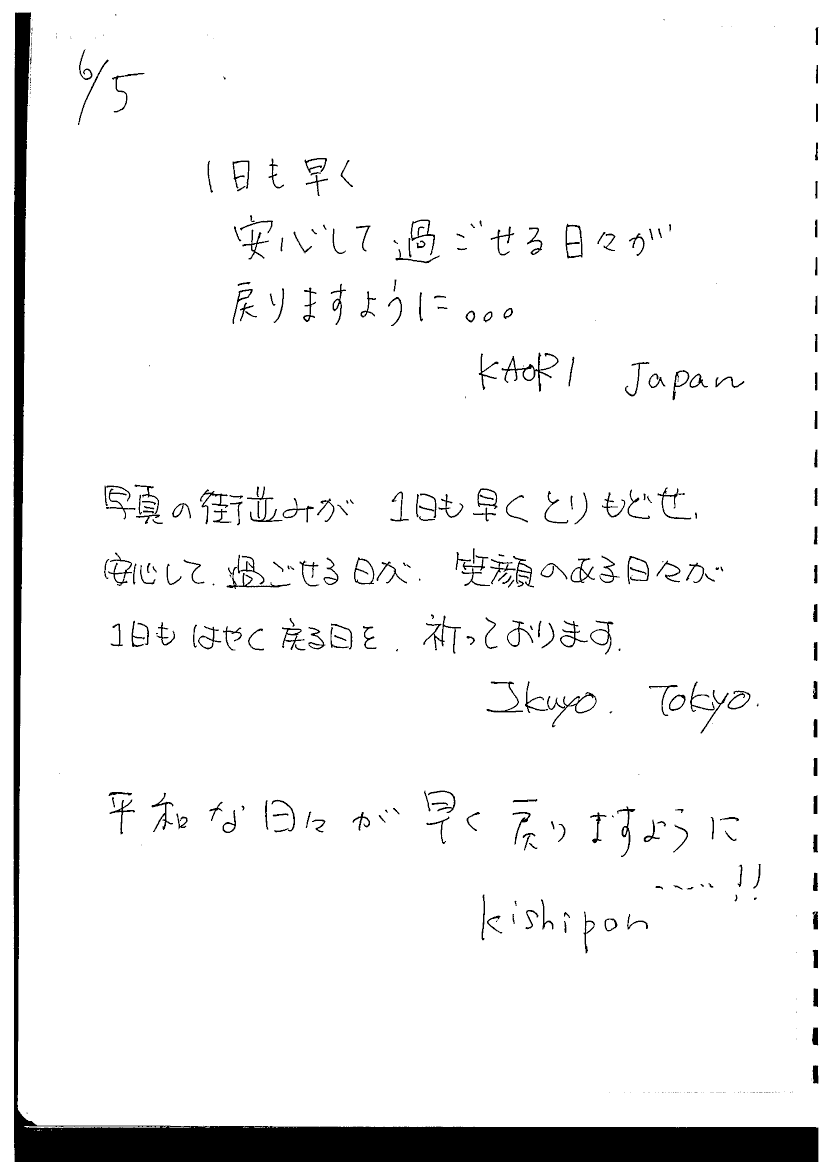 6/5
1日も早く
安心して過ごせる日々が
戻りますように。。。
KAORI Japan
写真の街並みが 1日も早くとりもどせ、
安心して、過ごせる日が、笑顔のある日々が
1日もはやく戻る日を、祈っております。
Ikuyo. Tokyo.
平和な日々が早く戻りますように
......!!
kishipon